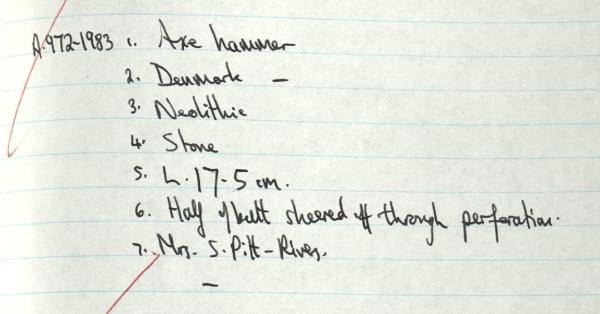 A.972-1983 1. Axe hammer
2. Denmark —
3. Neolithic
4. Stone
5. L. 17.5 cm.
6. Half of butt sheered off through perforation.
7. Mrs. S. Pitt-Rivers.
—